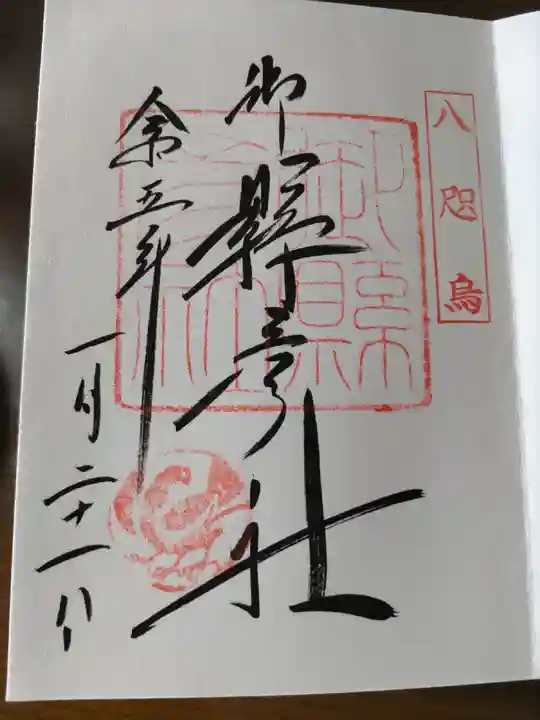 八咫烏
御縣彦社
御縣彦社
令和五年
一月二十一日